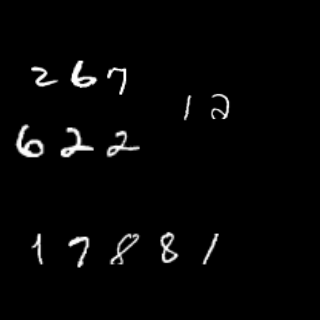 267
12
622
17881